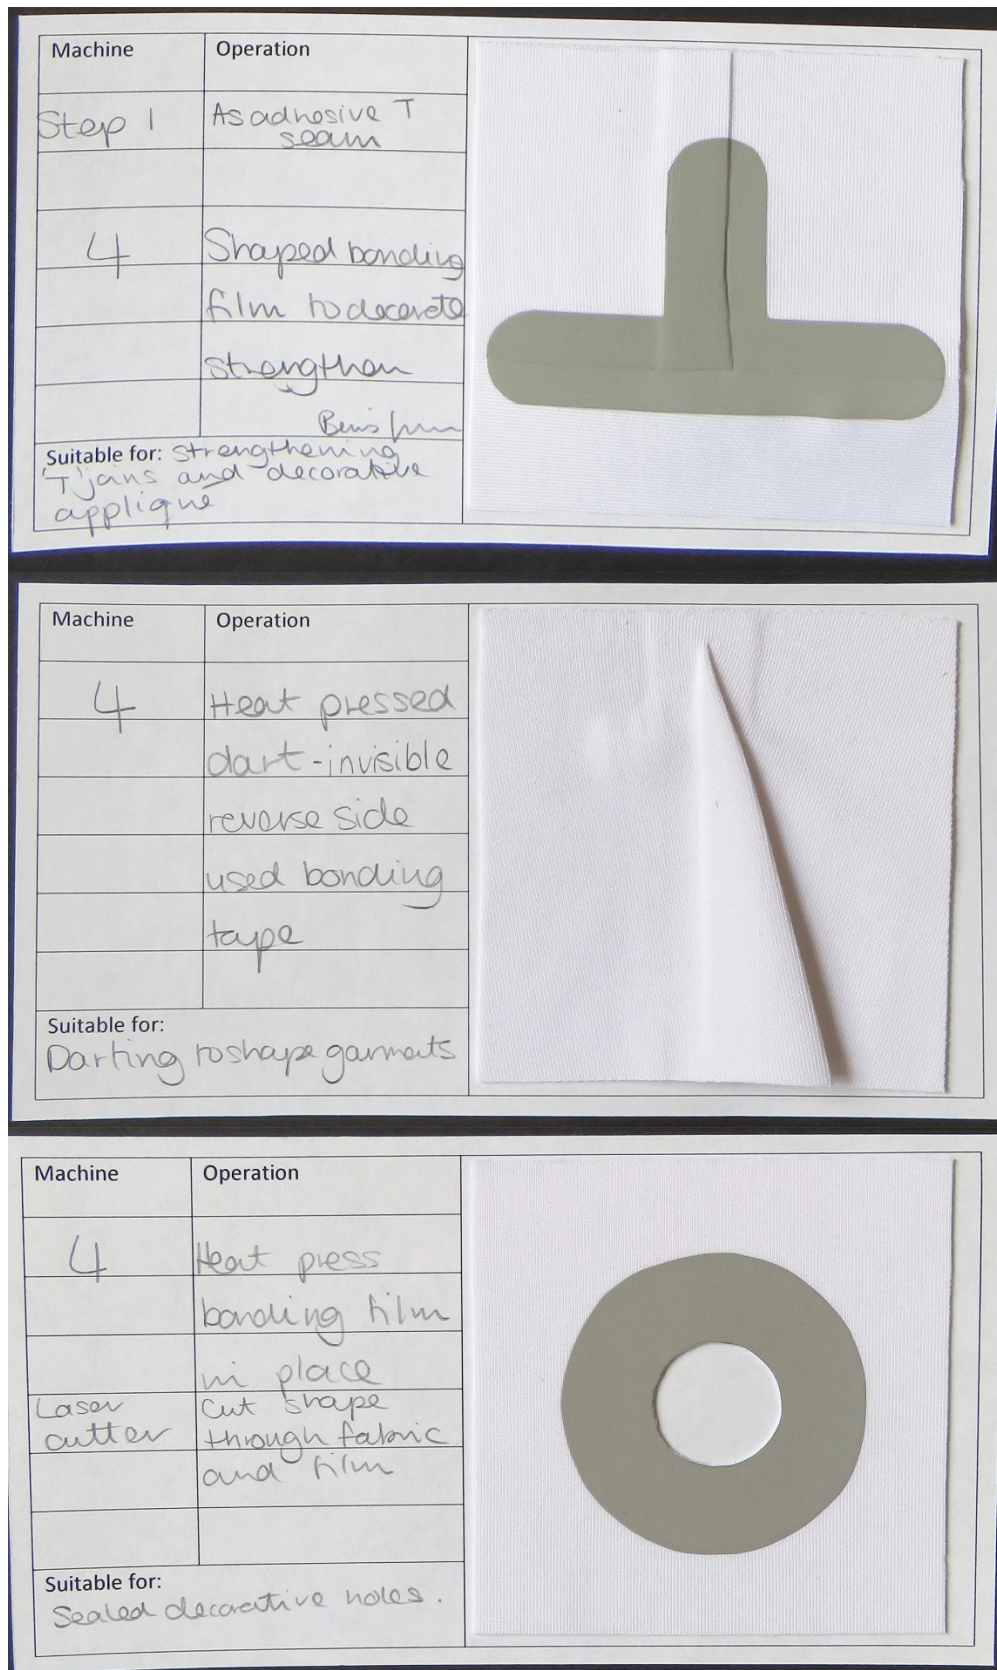 Machine Operation
Step 1 As adhesive T
seam
4 Shaped bonding
film to decorate
strengthen
Suitable for: strengthening
'T' joins and decorative
applique
Machine Operation
4 Heat pressed
dart-invisible
reverse side
used bonding
tape
Suitable for:
Darting to shape garments
Machine Operation
4 Heat press
bonding film
in place
Laser Cut shape
cutter through fabric
and film
Suitable for:
Sealed decorative holes.